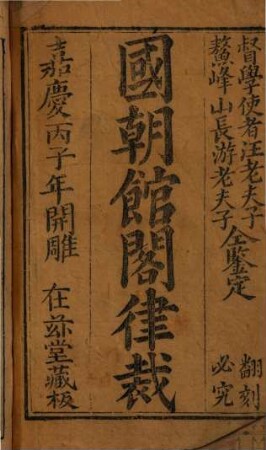 督學使者汪老夫子
鰲峰山長游老夫子
仝鑒定
翻刻
必究
國朝館閣律裁
嘉慶丙子年開雕
在茲堂藏板